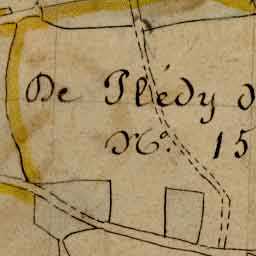 De Plédy d
N.º 15